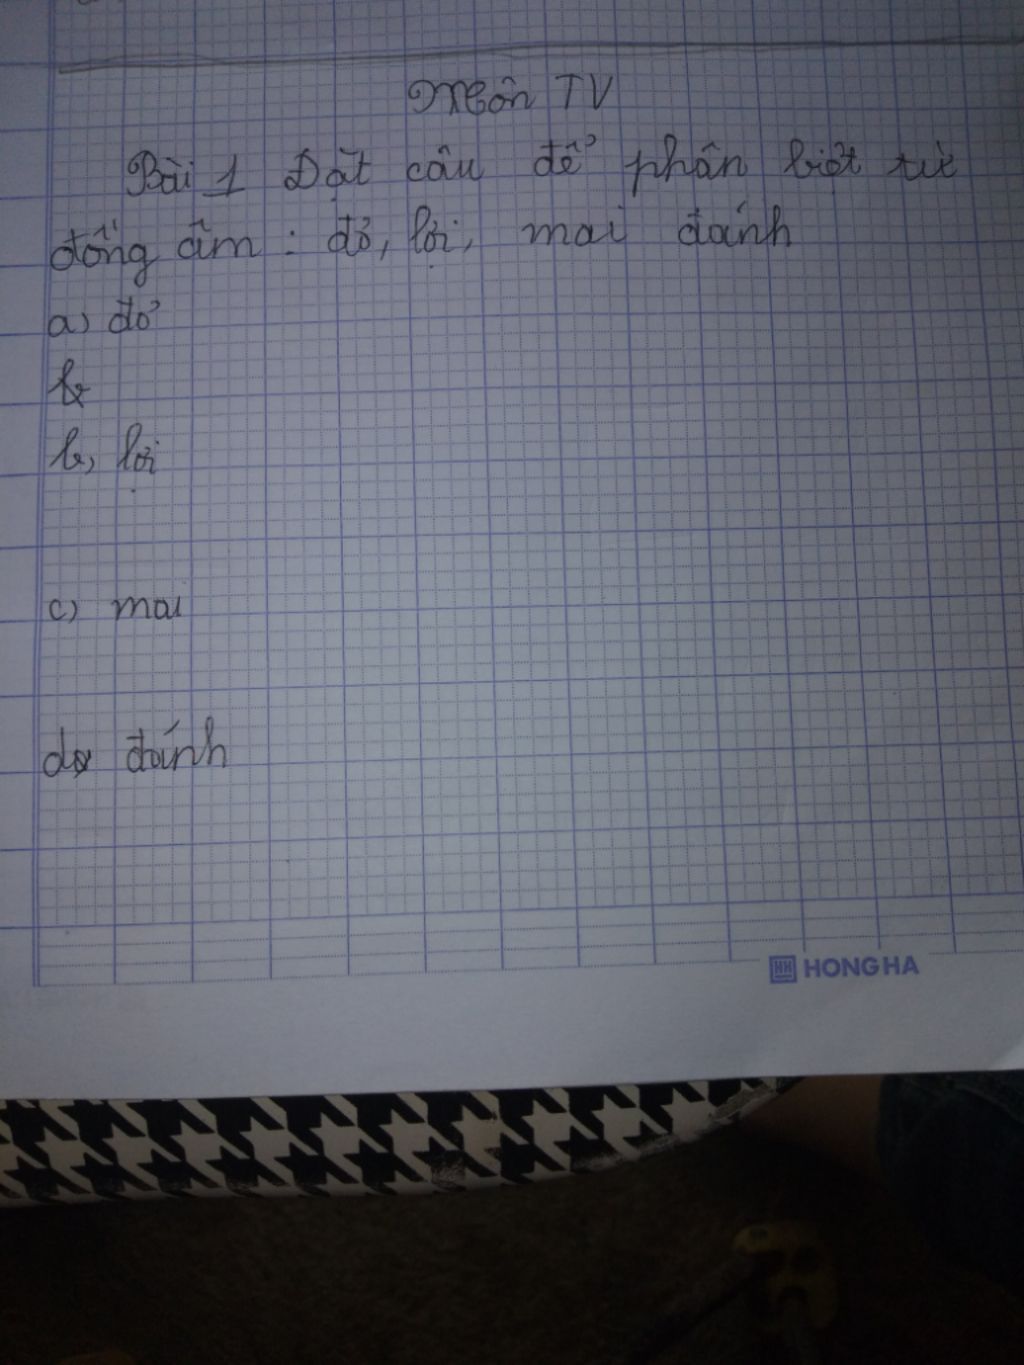 Môn TV
Bài 1 Đặt câu để phân biệt từ
đồng âm : đỏ, lợi, mai đánh
a) đỏ
b,
b, lợi
c) mai
d, đánh
HH HONG HA